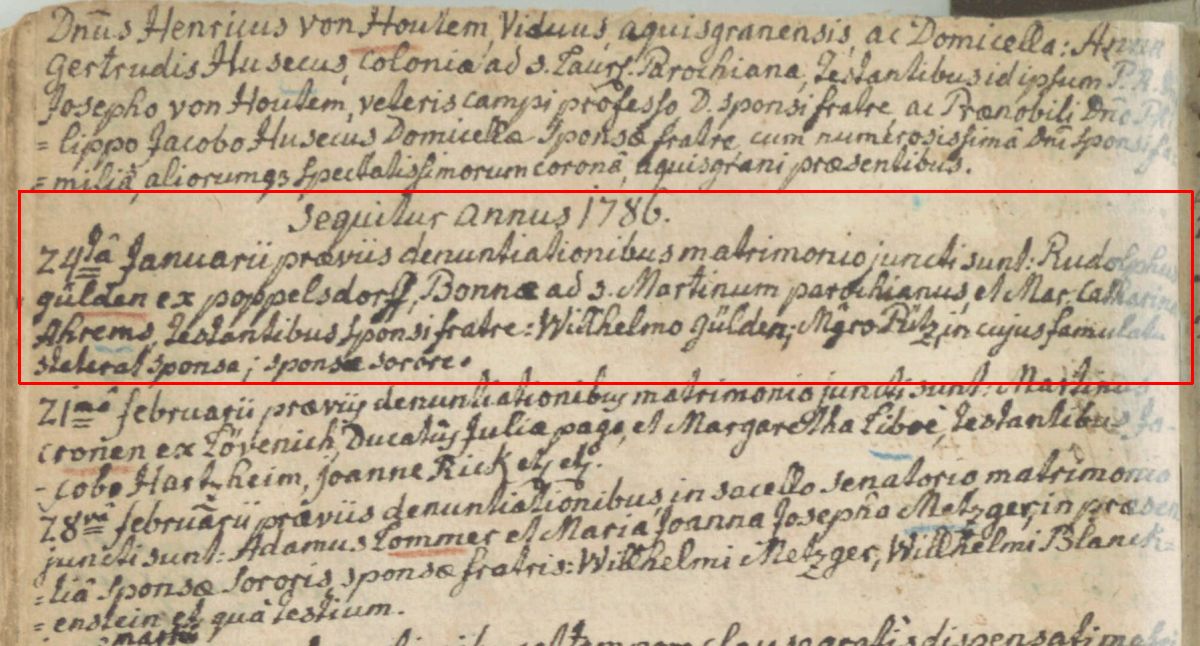 Dnūs Henricus von Houtem, Viduus, aquisgranensis, ac Domicella: Anna
Gertrudis Husecus, Coloniæ ad s. Laur: Parochiana, testantibus id ipsum P. R.
Josepho von Houtem, veteris campi professo D. sponsi fratre, ac Prænobili Dnō
= lippo Jacobo Husecus Domicellæ Sponsæ fratre, cum numerosissimâ Dni sponsi fa
= miliâ, aliorumq3 spectatissimorum coronâ, aquisgrani præsentibus.
Sequitur annus 1786.
24tâ Januarii præviis denuntiationibus matrimonio juncti sunt: Rudolphus
gülden ex poppelsdorff, Bonnæ ad s. Martinum parochianus, et Mar. Catharina
Ahrems, testantibus sponsi fratre: Willhelmo gülden; Mgro Pütz, in cujus famulatu
steterat sponsa; sponsæ sorore.
21mâ februarii præviis denuntiationibus matrimonio juncti sunt: Martinus
cronen ex Lövenich, Ducatûs Juliæ pago, et Margaretha Liboè, testantibus Ja-
- cobo Hartzheim, Joanne Rick etc etc.
28vâ februarii præviis denuntiationibus, in sacello senatorio matrimonio
juncti sunt: Adamus Lommer et Maria Joanna Josepha Metzger, in præsen
= tiâ sponsæ sororis, sponsæ fratris: Willhelmi Metzger, Willhelmi Blanck-
= enstein et quâ testium.
martii
dispensati